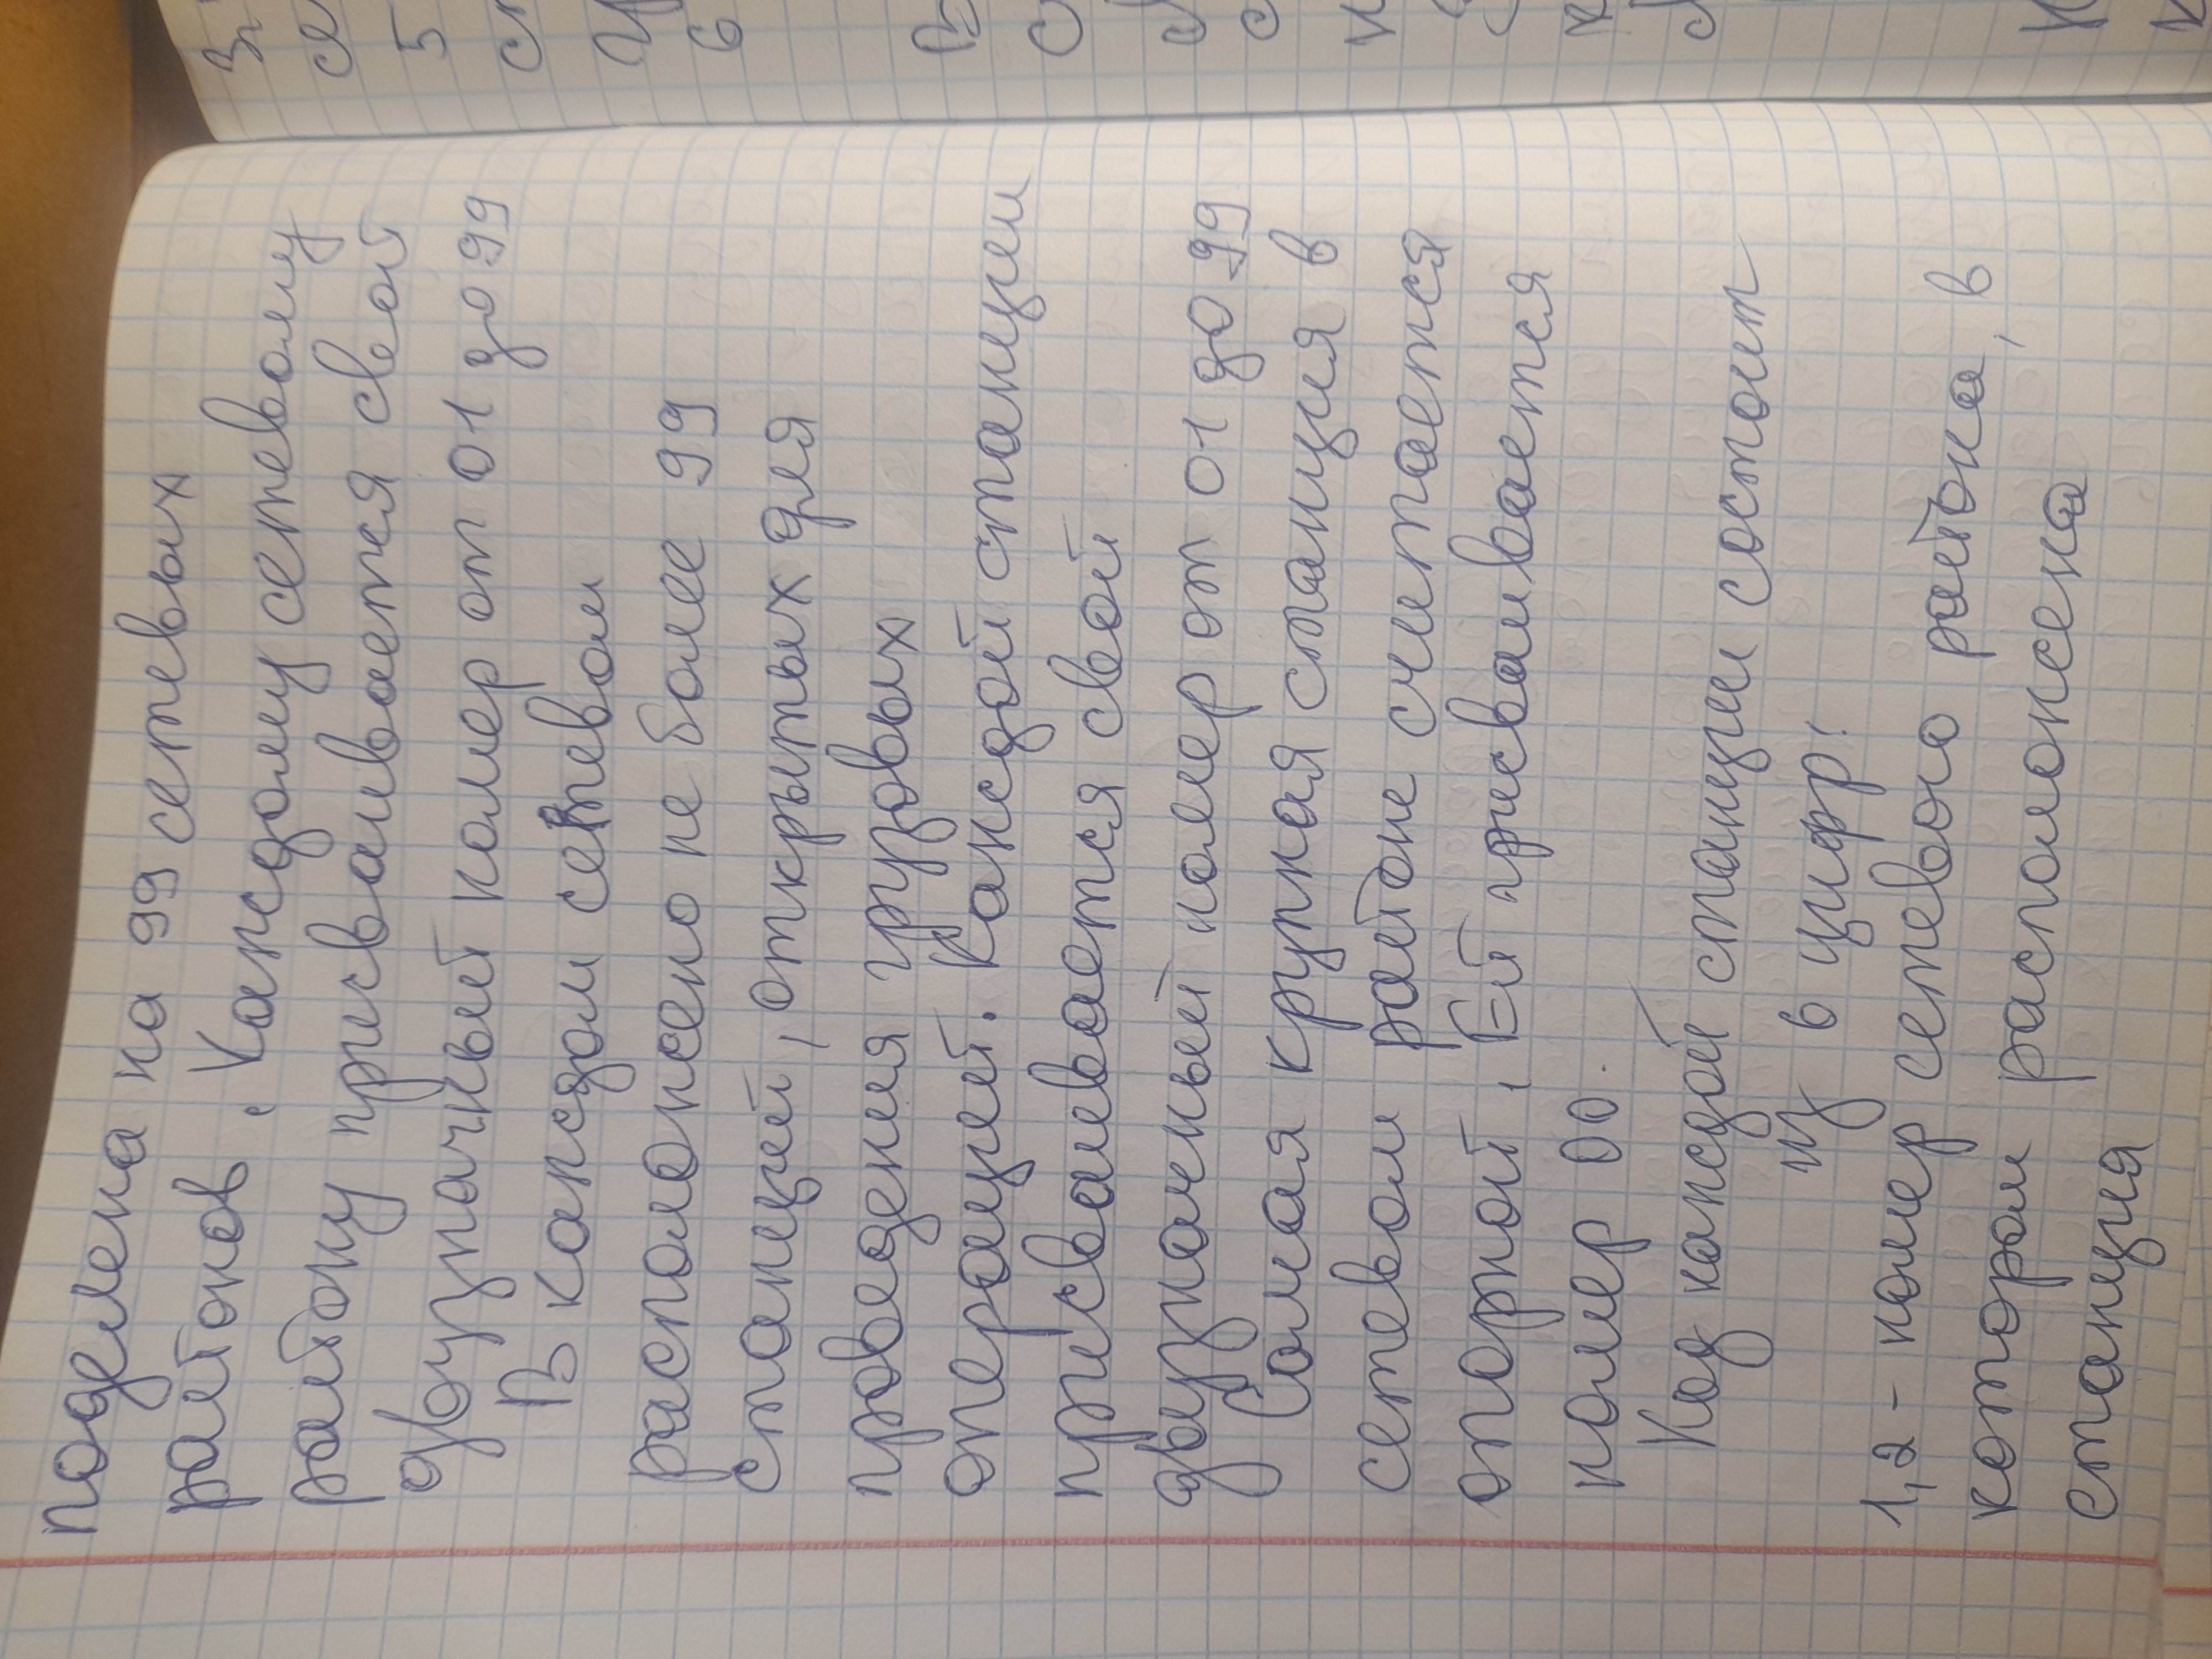 поделена на 99 сетевых
районов. Каждому сетевому
району присваивается свой
двузначный номер от 01 до 99
В каждом сетевом
расположено не более 99
станций, открытых для
проведения грузовых
операций. Каждой станции
присваивается свой
двузначный номер от 01 до 99
Самая крупная станция в
сетевом районе считается
опорной, Ей присваивается
номер 00.
Код каждой станции состоит
из 6 цифр:
1,2 - номер сетевого района, в
котором расположена
станция